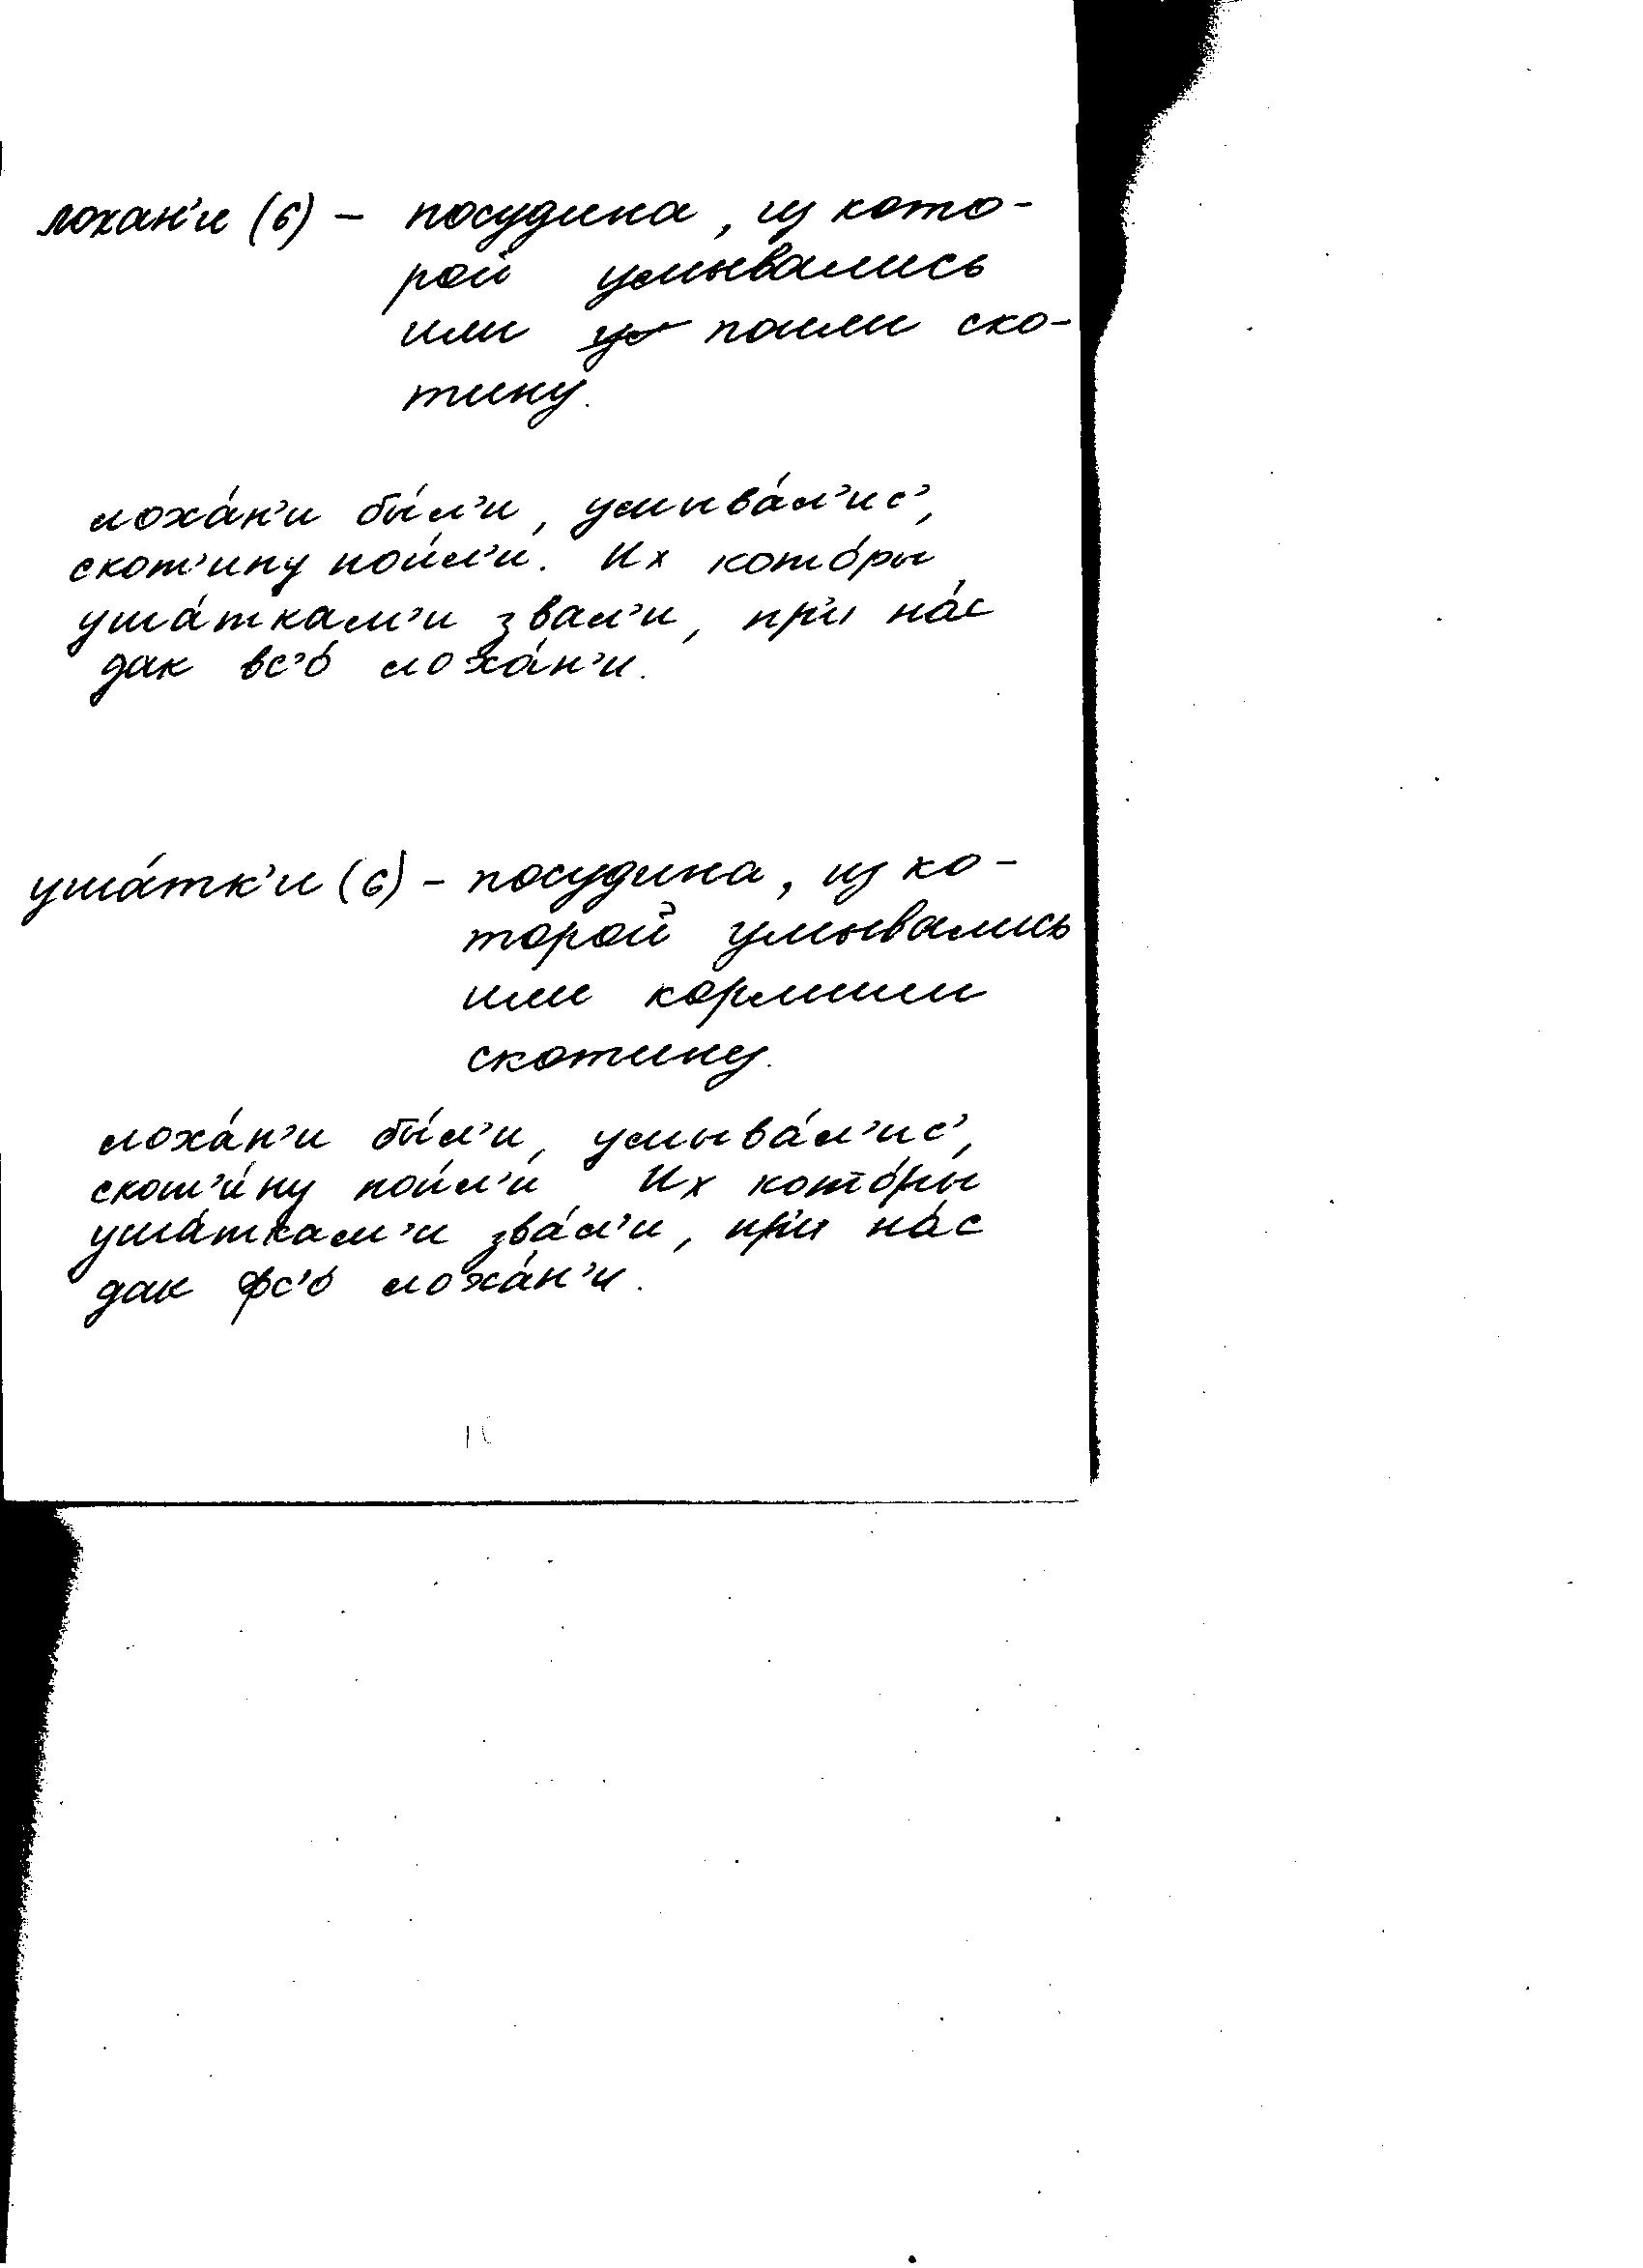 лохан'и (6) – посудина, из кото-
рой умывались
или поили ско-
тину.
лоха́н'и бы́л'и, умыва́л'ис',
скот'ину пои́л'и. Их кото́ры
уша́ткам'и звал'и, пр'и на́с
дак вс'о́ лоха́н'и.
уша́тк'и (6) – посудина, из ко-
торой умывались
или кормили
скотину.
лоха́н'и бы́л'и, умыва́л'ис',
скот'и́ну пои́л'и Их кото́ры
уша́ткам'и зва́л'и, пр'и на́с
дак фс'о́ лоха́н'и.